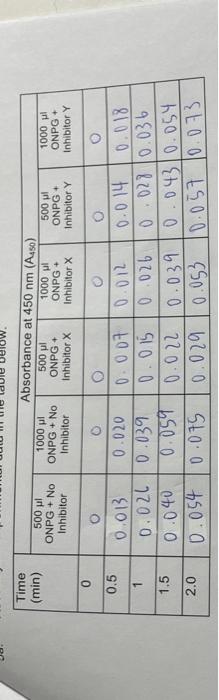 data in the table below.
Time (min) | Absorbance at 450 nm (A450)
500 µl ONPG + No Inhibitor | 1000 µl ONPG + No Inhibitor | 500 µl ONPG + Inhibitor X | 1000 µl ONPG + Inhibitor X | 500 µl ONPG + Inhibitor Y | 1000 µl ONPG + Inhibitor Y
0 | 0 | 0 | 0 | 0 | 0 | 0
0.5 | 0.013 | 0.020 | 0.007 | 0.012 | 0.014 | 0.018
1 | 0.026 | 0.039 | 0.015 | 0.026 | 0.028 | 0.036
1.5 | 0.040 | 0.059 | 0.022 | 0.039 | 0.043 | 0.054
2.0 | 0.054 | 0.075 | 0.029 | 0.053 | 0.057 | 0.073